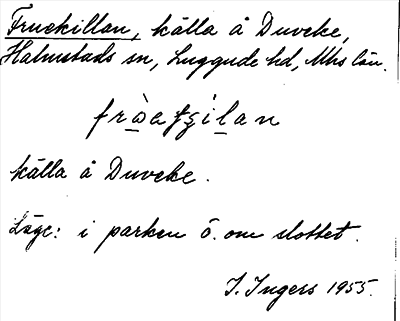 Fruekillan, källa å Duveke,
Halmstads sn, Luggude hd, Mhs län.
källa å Duveke.
Läge: i parken ö. om slottet.
I. Ingers 1955.